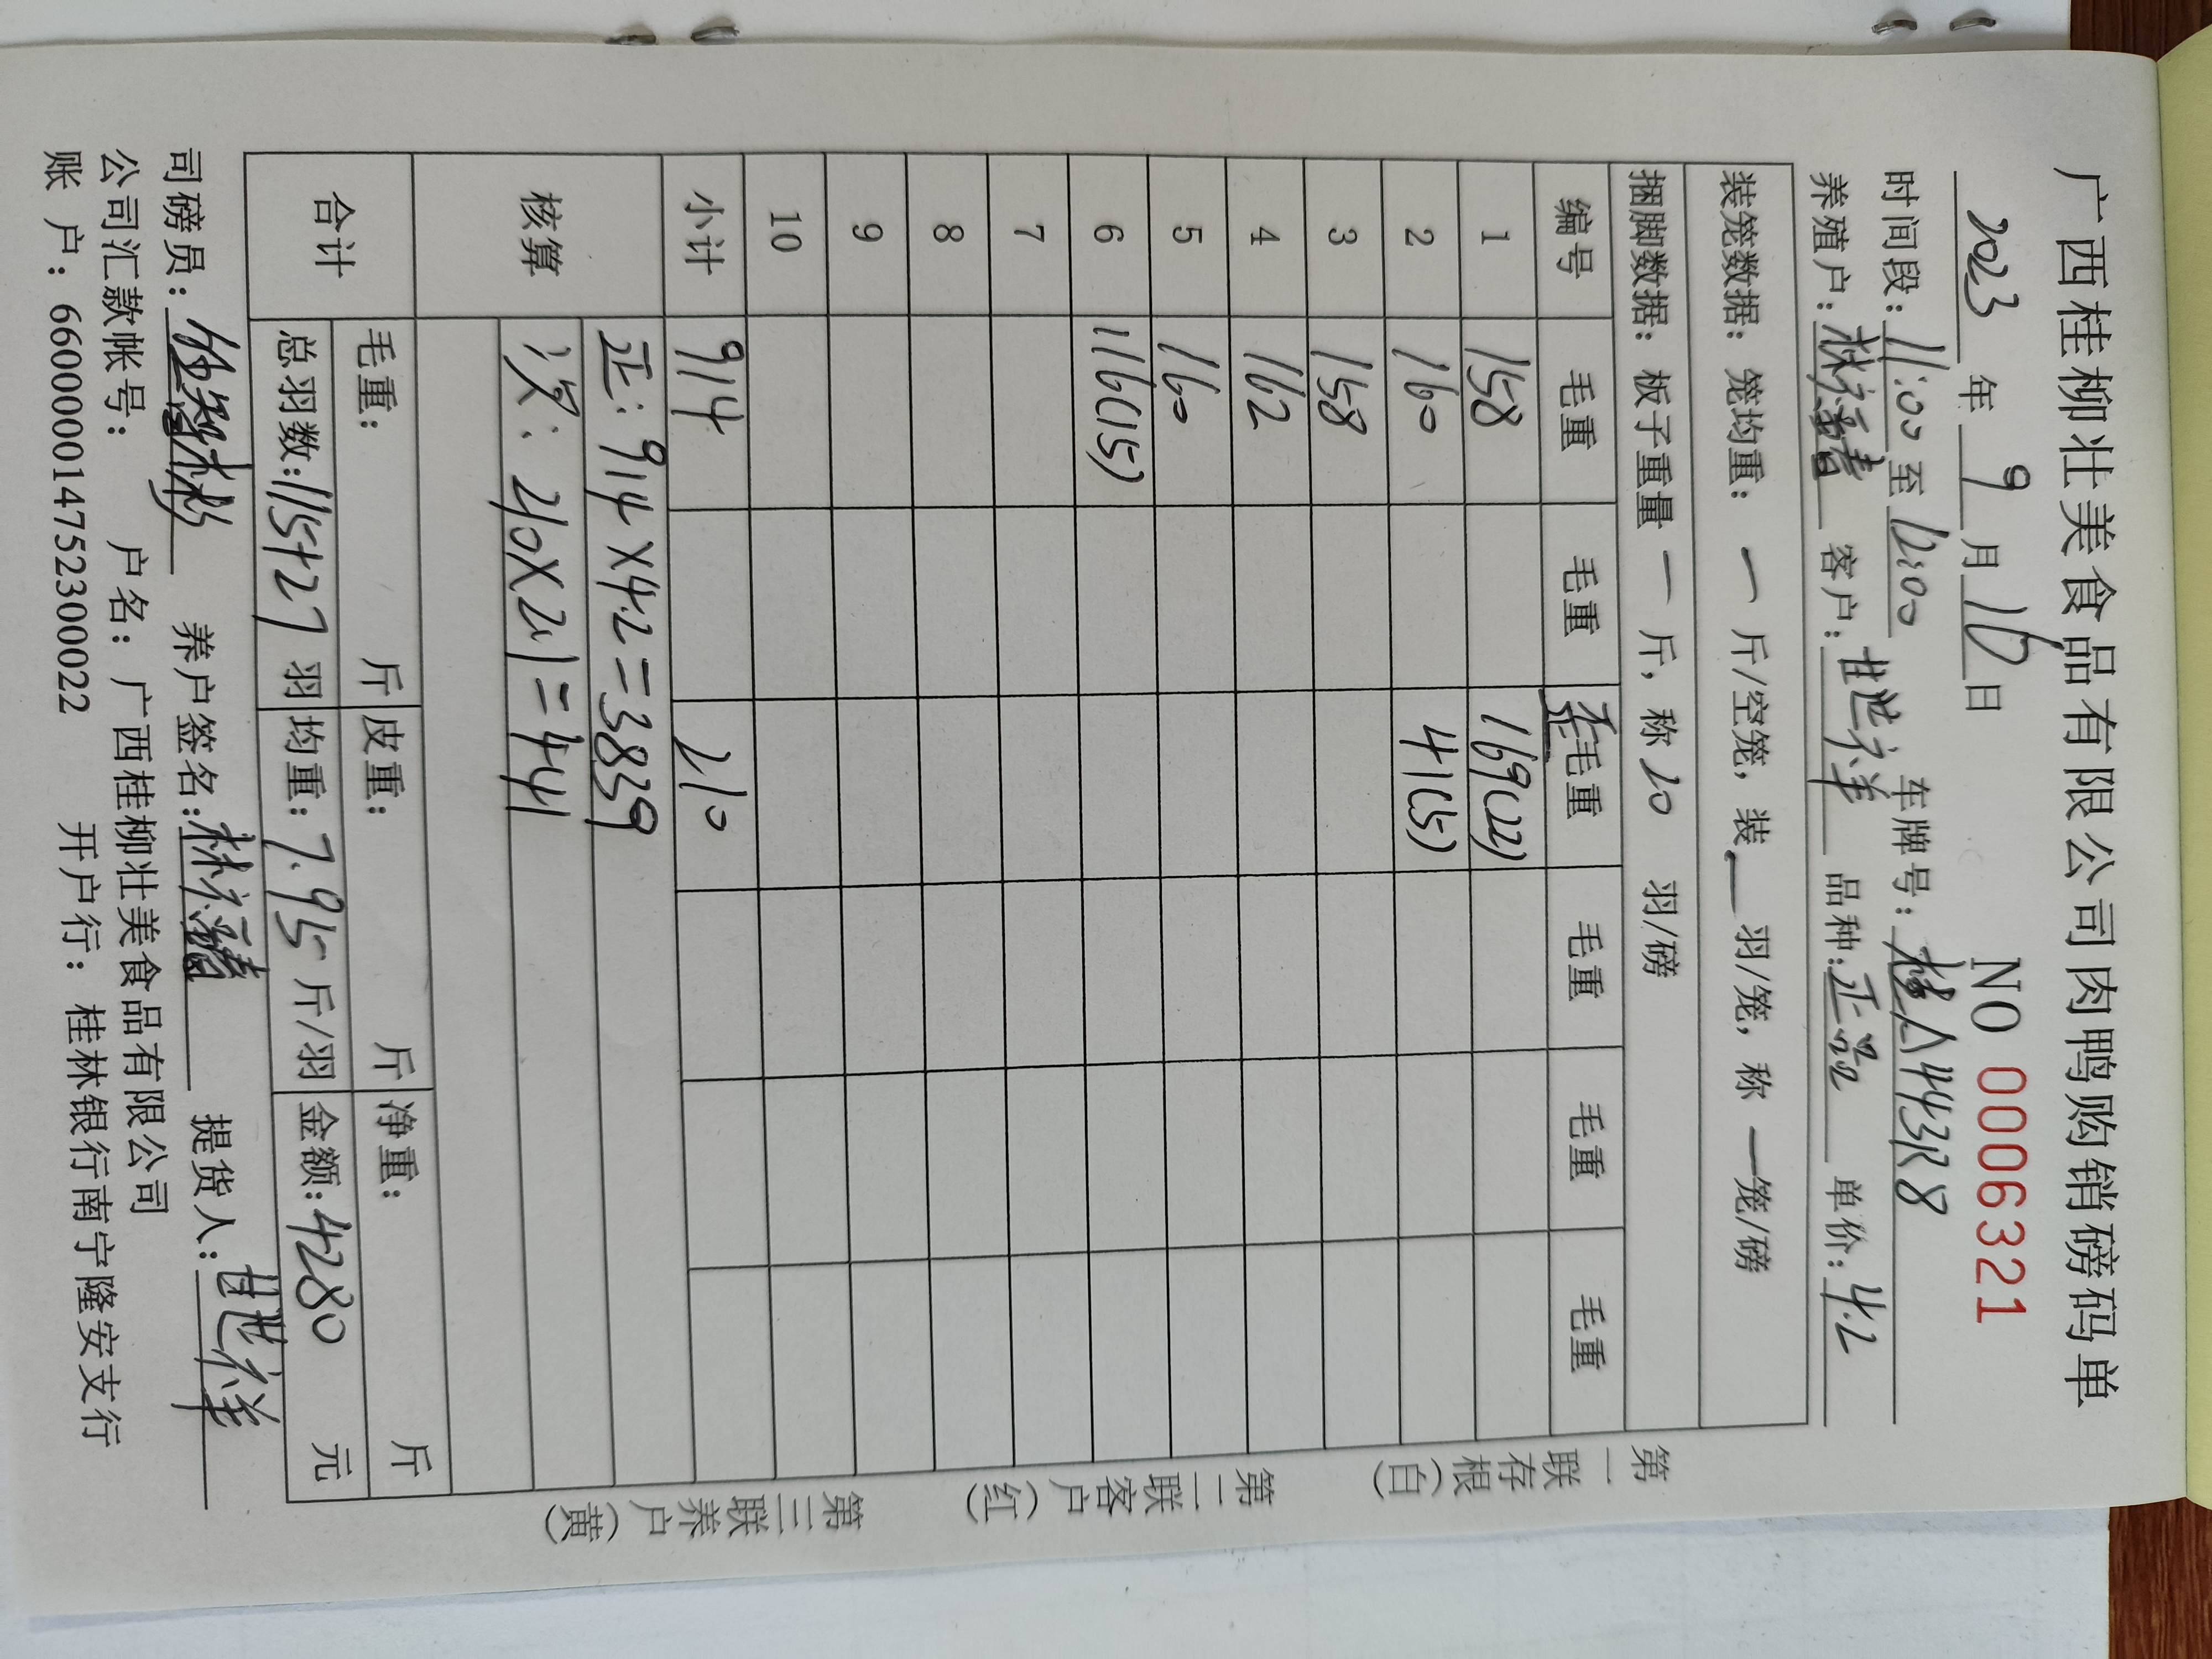 广西桂柳壮美食品有限公司肉鸭购销磅码单
NO 0006321
2023 年 9 月 16 日
时间段: 11:00 至 12:00 车牌号: 桂A443R8
养殖户: 林 客户: 甘世祥 品种: 正品 单价: 4.2
装笼数据: 笼均重: 一 斤/空笼, 装 一 羽/笼, 称 一 笼/磅
捆脚数据: 板子重量 一 斤, 称 20 羽/磅
编号 毛重 毛重 毛重 毛重 毛重 毛重
1 158 169(22)
2 160 41(5)
3 158
4 162
5 160
6 116(15)
7
8
9
10
小计 914 210
核算 正: 914×4.2=3839
次: 210×2.1=441
合计 毛重: 斤 皮重: 斤 净重: 斤
总羽数: 115+27 羽 均重: 7.95 斤/羽 金额: 4280 元
司磅员: 养户签名: 林 提货人: 甘世祥
公司汇款帐号: 户名: 广西桂柳壮美食品有限公司
账 户: 660000014752300022 开户行: 桂林银行南宁隆安支行
第一联存根(白) 第二联客户(红) 第三联养户(黄)